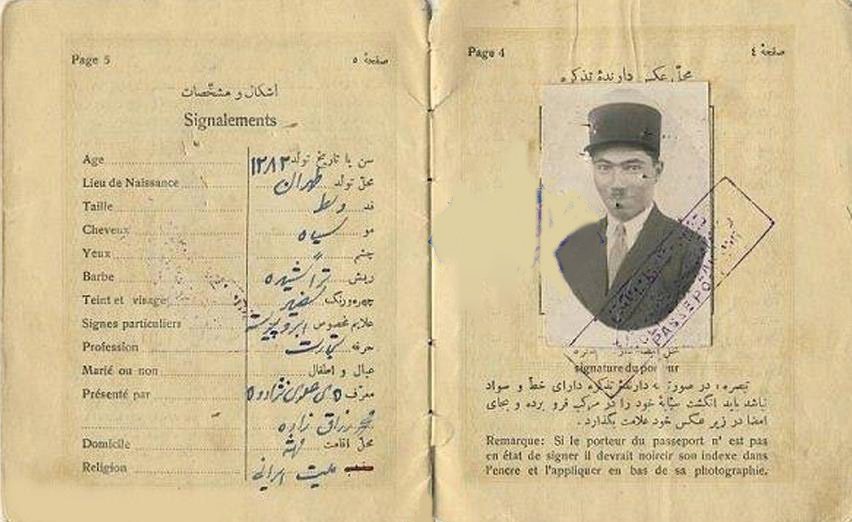 Page 5 صفحهٔ ٥
اشکال و مشخّصات
Signalements
Age سن یا تاریخ تولد ۱۲۸۳
Lieu de Naissance محل تولد طهران
Taille قد وسط
Cheveux مو سیاه
Yeux چشم
Barbe ریش تراشیده
Teint et visage چهره ورنگ
Signes particuliers علایم مخصوص ابرو پیوسته
Profession حرفه تجارت
Marié ou non عیال و اطفال
Présenté par معرّف
زاده
Domicile محلّ اقامت
Religion ملیت ایرانی
Page 4 صفحهٔ ٤
محلّ عکس دارندهٔ تذکره
PASSEPO
signature du porteur
تبصره : در صورتیکه دارندهٔ تذکره دارای خطّ و سواد
نباشد باید انگشت سبّابهٔ خود را در مرکّب فرو برده و بجای
امضا در زیر عکس خود علامت بگذارد .
Remarque: Si le porteur du passeport n' est pas
en état de signer il devrait noircir son indexe dans
l'encre et l'appliquer en bas de sa photographie.